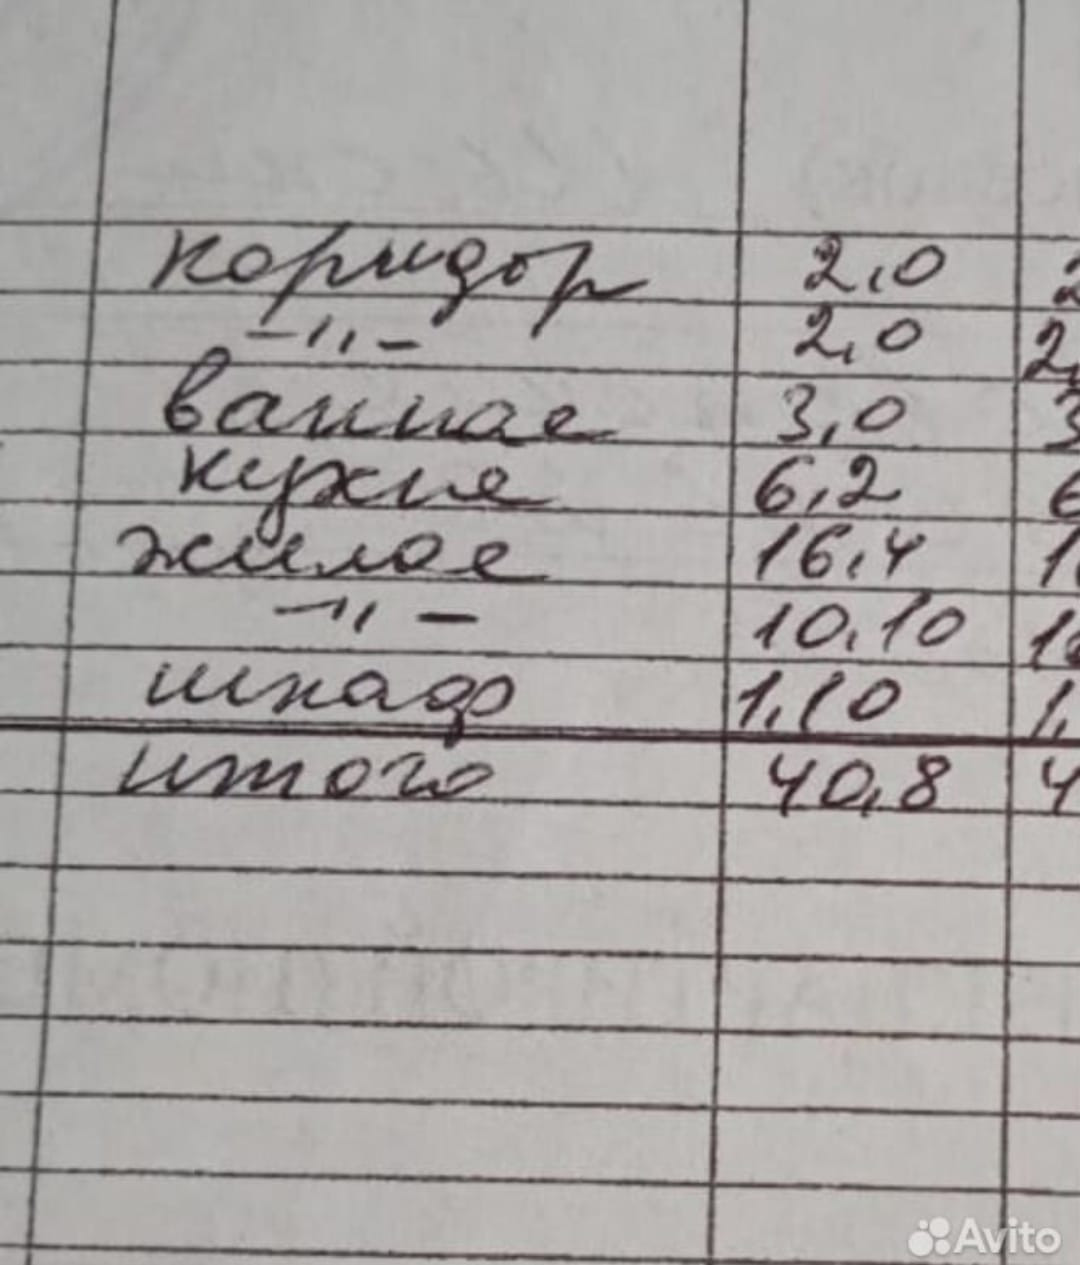 коридор 2,0 2
-"- 2,0 2,
ванная 3,0 3
кухня 6,2 6
жилая 16,4 1
-"- 10,10 10
шкаф 1,10 1,
итого 40,8 4
Avito